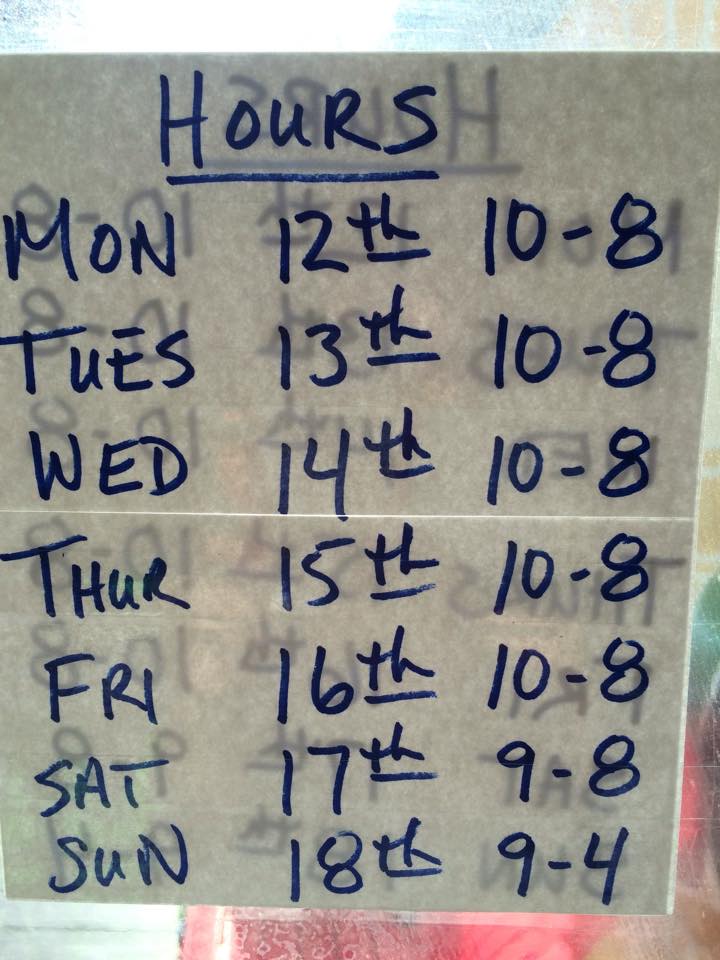 HOURS
MON 12th 10-8
TUES 13th 10-8
WED 14th 10-8
THUR 15th 10-8
FRI 16th 10-8
SAT 17th 9-8
SUN 18th 9-4